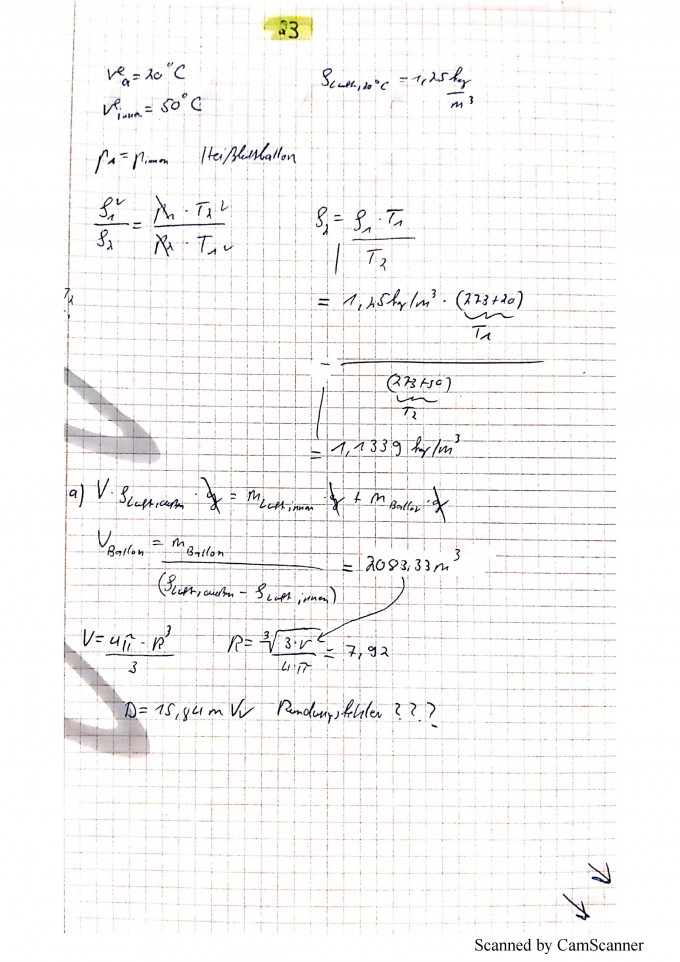 23
ϑa = 20°C
ρLuft,20°C = 1,25 kg/m³
ϑinnen = 50°C
p1 = pinnen Heißluftballon
ρ1/ρ2 = p1 · T2 / p2 · T1
ρ2 = ρ1 · T1 / T2
= 1,25 kg/m³ · (273+20)
T1
(273+50)
T2
= 1,1339 kg/m³
a) V · ρLuft,außen · g = mLuft,innen · g + mBallon · g
VBallon = mBallon / (ρLuft,außen - ρLuft,innen) = 2083,33 m³
V = 4π · R³ / 3 R = ³√(3·V / 4·π) = 7,92
D = 15,84 m Rundungsfehler ???
Scanned by CamScanner